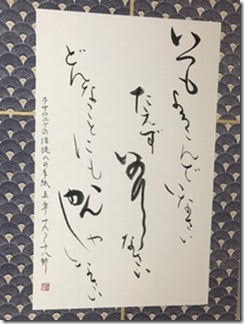 いつもよろこんで
いなさい
たえず
いのり
なさい
どんなことにも
かんしゃ
しなさい
テサロニケの信徒への手紙 五章 十六〜十八節